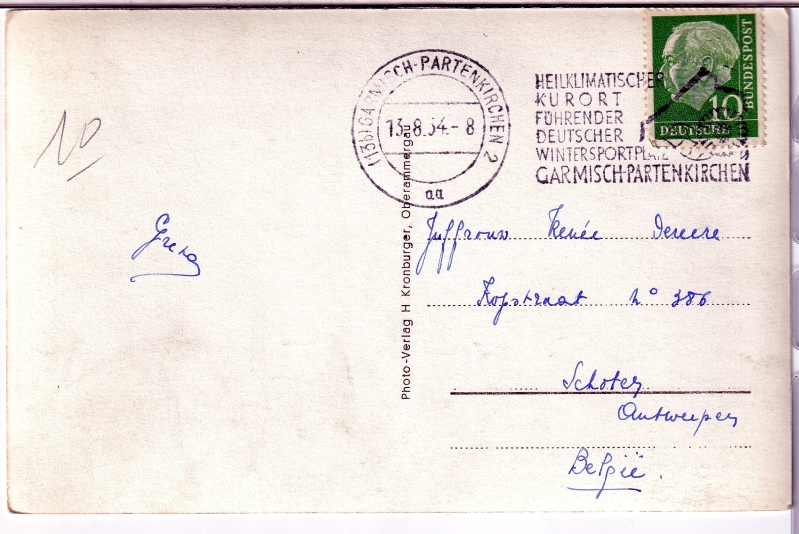 10
(13b) GARMISCH-PARTENKIRCHEN 2
13.-8.54.-8
aa
HEILKLIMATISCHER
KURORT
FÜHRENDER
DEUTSCHER
WINTERSPORTPLATZ
GARMISCH-PARTENKIRCHEN
10
DEUTSCHE
BUNDESPOST
Greta
Photo-Verlag H Kronburger, Oberammergau
Juffrouw Renée
N° 386
Schoten
Antwerpen
België.